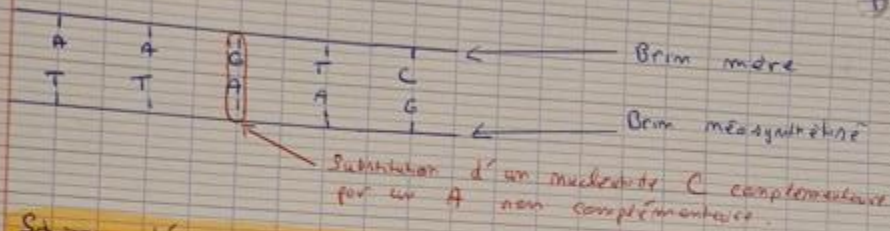 A A G T C
Brin mère
T T A A G
Brin néosynthétisé
Substitution d'un nucléotide C complémentaire
par un A non complémentaire.